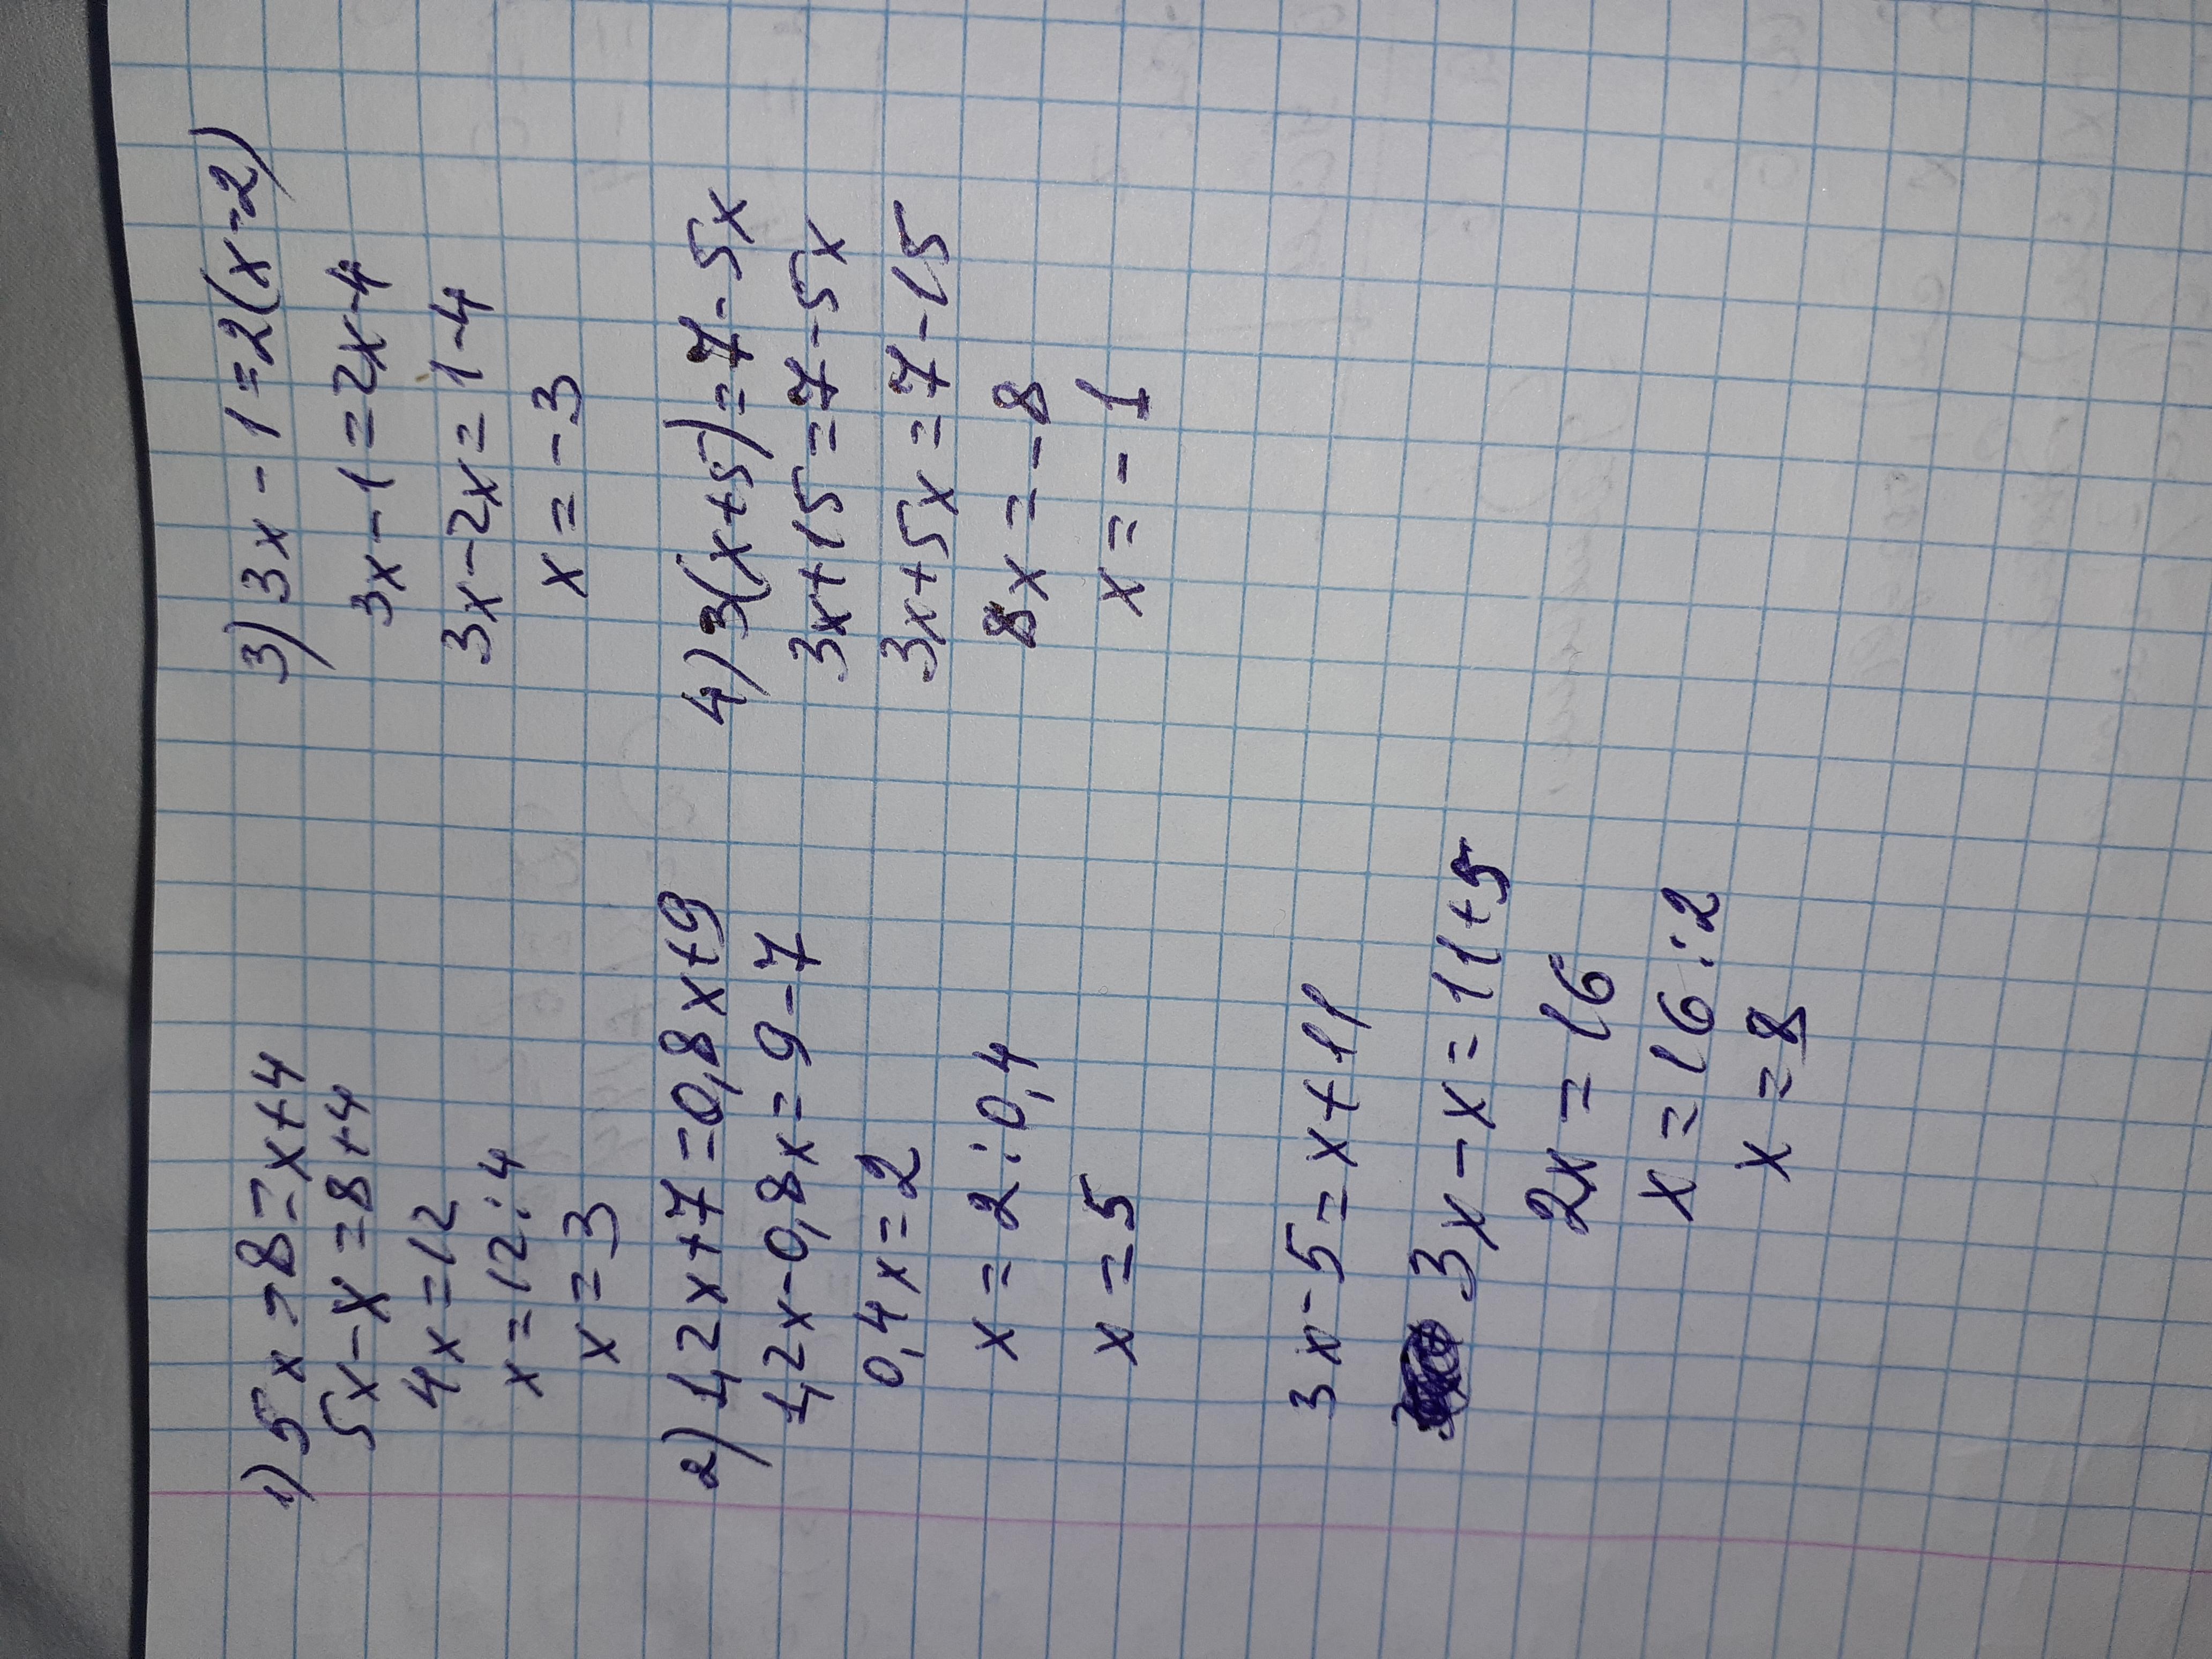 1) 5x-8=x+4
5x-x=8+4
4x=12
x=12:4
x=3
2) 1,2x+7=0,8x+9
1,2x-0,8x=9-7
0,4x=2
x=2:0,4
x=5
3x-5=x+11
3x-x=11+5
2x=16
x=16:2
x=8
3) 3x-1=2(x-2)
3x-1=2x-4
3x-2x=1-4
x=-3
4) 3(x+5)=7-5x
3x+15=7-5x
3x+5x=7-15
8x=-8
x=-1